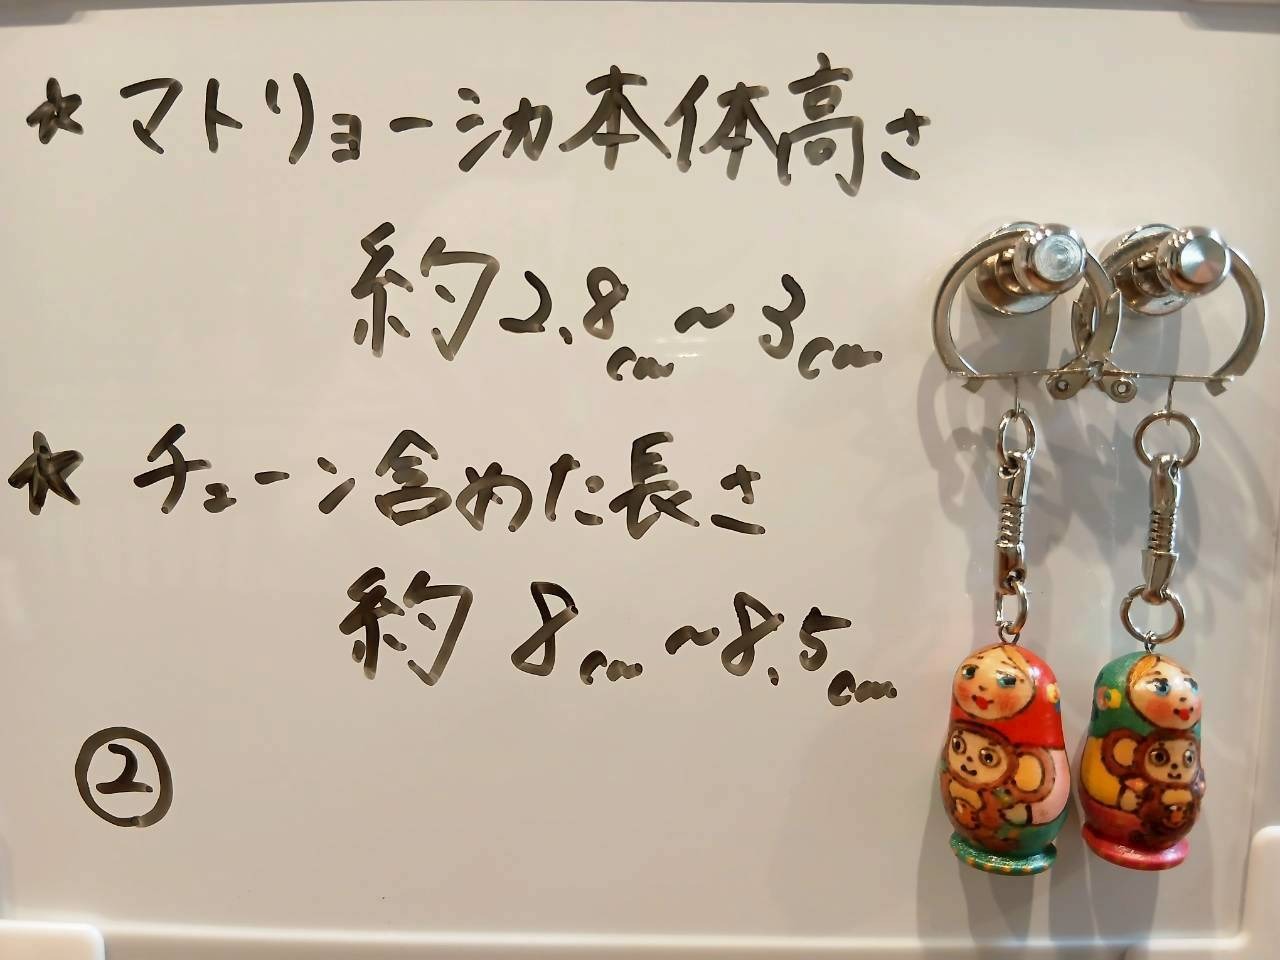 ★マトリョーシカ本体高さ
約2.8cm~3cm
★チェーン含めた長さ
約8cm~8.5cm
②